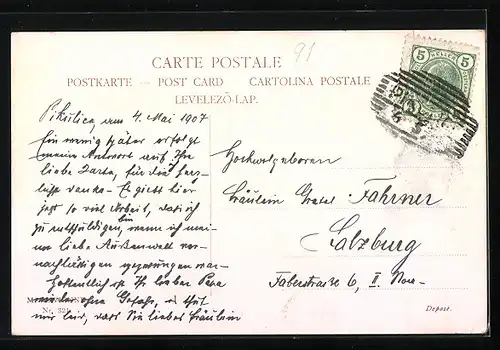 91
CARTE POSTALE
POSTKARTE — POST CARD CARTOLINA POSTALE
LEVELEZŐ-LAP.
5 HELLER 5
4. Mai 1907
Ein wenig später erfolgt
meine Antwort auf Ihre
liebe Karte, für die herz-
lichst danke. Es giebt hier
jetzt so viel Arbeit, daß ich
zu entschuldigen bin, wenn ich mei-
ne liebe Außenwelt ver-
nachlässigen gezwungen war.
Hoffentlich ist Ihr lieber Papa
wieder ohne Gefahr, es thut
mir leid, dass Sie liebes Fräulein
Hochwolgeboren
Fräulein Gretel Fahrner
Salzburg
Faberstrasse 6, II.
Nr. 321
Depost.